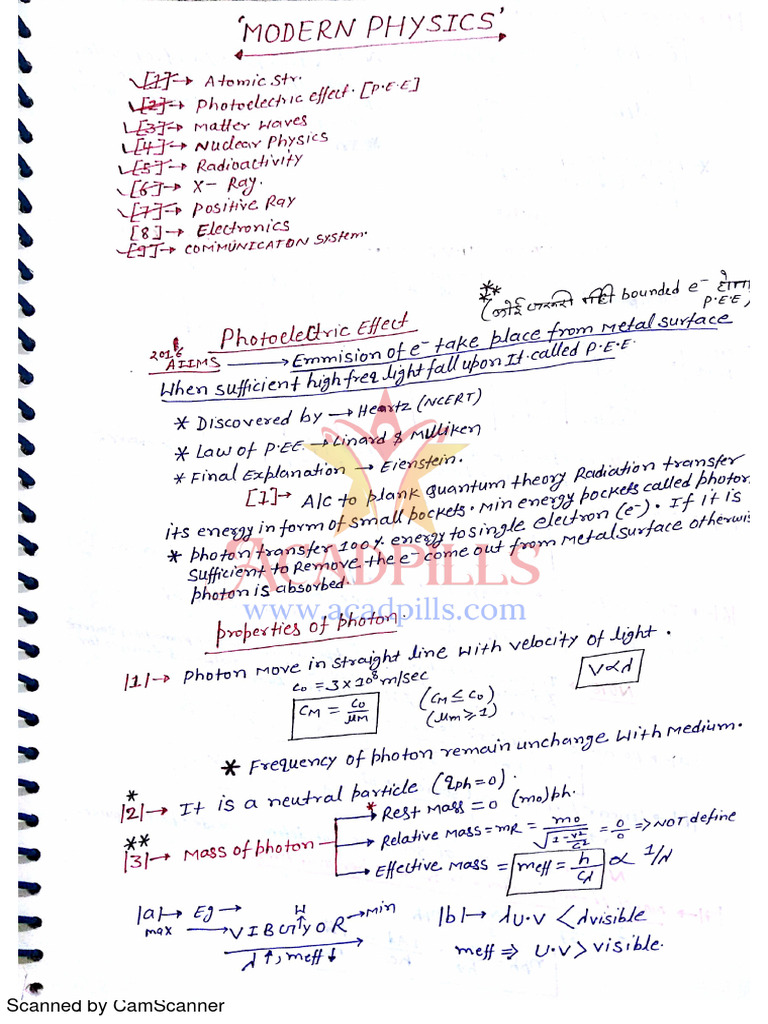 'MODERN PHYSICS'
[1]→ Atomic Str.
[2]→ Photoelectric effect. [P.E.E]
[3]→ Matter Waves
[4]→ Nuclear Physics
[5]→ Radioactivity
[6]→ X- Ray.
[7]→ Positive Ray
[8]→ Electronics
[9]→ COMMUNICATON System.
** (कोई जरूरी नहीं bounded e⁻ होना P.E.E)
Photoelectric Effect
2016 AIIMS → Emmision of e⁻ take place from Metal surface
When sufficient high freq light fall upon It called P.E.E.
* Discovered by → Heartz (NCERT)
* Law of P.EE → Linard & Milliken
* Final Explanation → Eienstein.
[1]→ A/c to plank quantum theory Radiation transfer
its energy in form of small pockets. Min energy pockets called photon
* photon transfer 100% energy to single electron (e⁻). If it is
Sufficient to Remove the e⁻ come out from Metal surface otherwis
photon is absorbed.
ACADPILLS
www.acadpills.com
properties of photon.
|1|→ Photon move in straight line with velocity of light.
C₀ = 3 × 10⁸ m/sec
V∝λ
C_M = C₀/μ_M
(C_M ≤ C₀)
(μ_m ≥ 1)
* Frequency of photon remain unchange with medium.
* |2|→ It is a neutral particle (q_ph = 0).
** |3|→ Mass of photon
* Rest Mass = 0 (m₀)ph.
Relative mass = m_R = m₀/√(1-v²/c²) = 0/0 ⇒ NOT define
Effective Mass = m_eff = h/cλ ∝ 1/λ
|a|→ Eg →
max → V I B G Y O R → Min
W
λ↑, m_eff↓
|b|→ λ U.V < λ visible
m_eff ⇒ U.V > visible.
Scanned by CamScanner